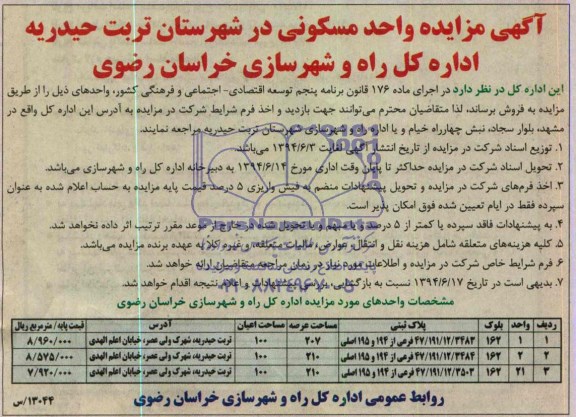 آگهی مزایده واحد مسکونی در شهرستان تربت حیدریه
اداره کل راه و شهرسازی خراسان رضوی
این اداره کل در نظر دارد در اجرای ماده ۱۷۶ قانون برنامه پنجم توسعه اقتصادی- اجتماعی و فرهنگی کشور، واحدهای ذیل را از طریق
مزایده به فروش برساند، لذا متقاضیان محترم می‌توانند جهت بازدید و اخذ فرم شرایط شرکت در مزایده به آدرس این اداره کل واقع در
مشهد، بلوار سجاد، نبش چهارراه خیام و یا اداره راه و شهرسازی شهرستان تربت حیدریه مراجعه نمایند.
۱. توزیع اسناد شرکت در مزایده از تاریخ انتشار آگهی لغایت ۱۳۹۴/۶/۳ می‌باشد.
۲. تحویل اسناد شرکت در مزایده حداکثر تا پایان وقت اداری مورخ ۱۳۹۴/۶/۱۴ به دبیرخانه اداره کل راه و شهرسازی می‌باشد.
۳. اخذ فرم‌های شرکت در مزایده و تحویل پیشنهادات منضم به فیش واریزی ۵ درصد قیمت پایه مزایده به حساب اعلام شده به عنوان
سپرده فقط در ایام تعیین شده فوق امکان پذیر است.
۴. به پیشنهادات فاقد سپرده یا کمتر از ۵ درصد و یا مبهم و یا تحویل شده در خارج از موعد مقرر ترتیب اثر داده نخواهد شد.
۵. کلیه هزینه‌های متعلقه شامل هزینه نقل و انتقال، عوارض، مالیات متعلقه و غیره کلا به عهده برنده مزایده می‌باشد.
۶. فرم شرایط خاص شرکت در مزایده و اطلاعات مورد نیاز در زمان مراجعه متقاضیان ارائه خواهد شد.
۷. بدیهی است در تاریخ ۱۳۹۴/۶/۱۷ نسبت به بازگشایی، بررسی پیشنهادات و اعلام نتیجه اقدام خواهد شد.
مشخصات واحدهای مورد مزایده اداره کل راه و شهرسازی خراسان رضوی
ردیف واحد بلوک پلاک ثبتی مساحت عرصه مساحت اعیان آدرس قیمت پایه / مترمربع ریال
۱ ۱ ۱۶۲ ۴۷/۱۹۱/۱۲/۳۴۸۳ فرعی از ۱۹۴ و ۱۹۵ اصلی ۲۰۷ ۱۰۰ تربت حیدریه، شهرک ولی عصر، خیابان اعلم الهدی ۸/۹۶۰/۰۰۰
۲ ۲ ۱۶۲ ۴۷/۱۹۱/۱۲/۳۴۸۴ فرعی از ۱۹۴ و ۱۹۵ اصلی ۲۱۰ ۱۰۰ تربت حیدریه، شهرک ولی عصر، خیابان اعلم الهدی ۸/۵۷۵/۰۰۰
۳ ۲۱ ۱۶۲ ۴۷/۱۹۱/۱۲/۳۵۰۳ فرعی از ۱۹۴ و ۱۹۵ اصلی ۲۱۰ ۱۰۰ تربت حیدریه، شهرک ولی عصر، خیابان اعلم الهدی ۷/۹۲۰/۰۰۰
روابط عمومی اداره کل راه و شهرسازی خراسان رضوی
۱۳۰۴۴/س